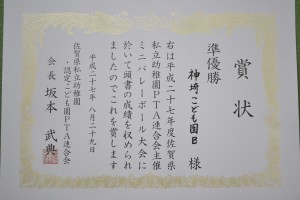 賞状
準優勝
神埼こども園B 様
右は平成二十七年度佐賀県
私立幼稚園PTA連合会主催
ミニバレーボール大会に
於いて頭書の成績を収められ
ましたのでこれを賞します
平成二十七年 八月二十九日
佐賀県私立幼稚園
・認定こども園PTA連合会
会長 坂本武典